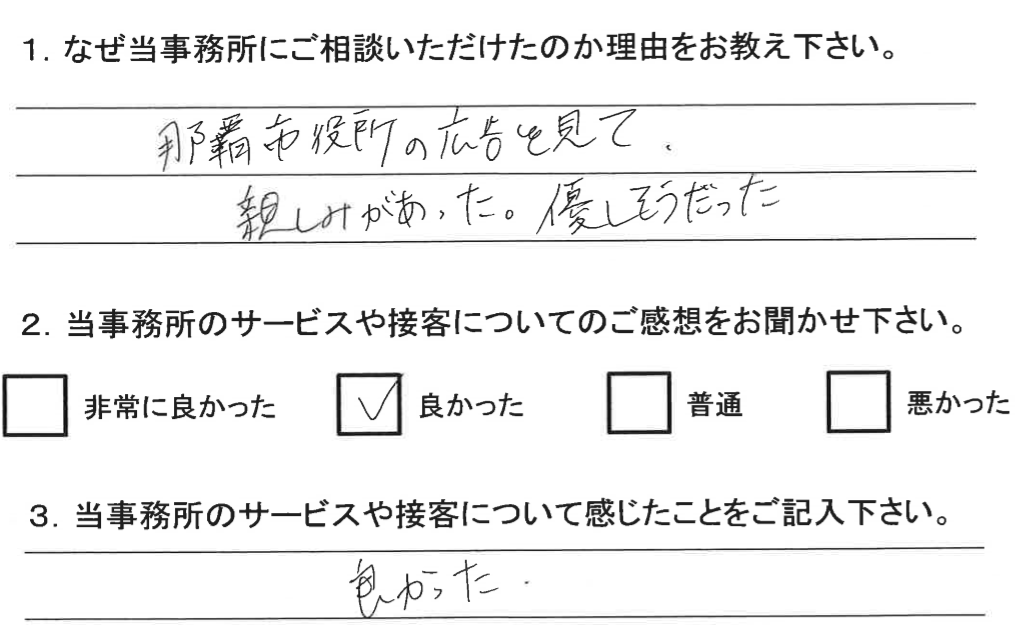 1. なぜ当事務所にご相談いただけたのか理由をお教え下さい。
那覇市役所の広告を見て.
親しみがあった。優しそうだった
2. 当事務所のサービスや接客についてのご感想をお聞かせ下さい。
非常に良かった 良かった 普通 悪かった
3. 当事務所のサービスや接客について感じたことをご記入下さい。
良かった.